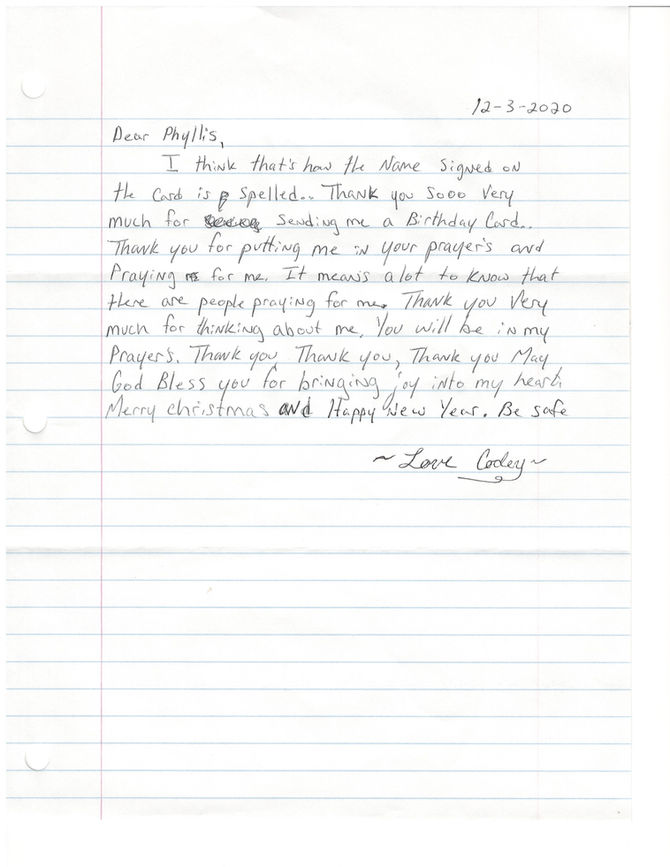 12-3-2020
Dear Phyllis,
I think that's how the Name Signed on
the Card is Spelled.. Thank you Sooo Very
much for Sending me a Birthday Card..
Thank you for putting me in your prayer's and
Praying for me. It mean's a lot to know that
there are people praying for me. Thank you Very
much for thinking about me. You will be in my
Prayer's. Thank you Thank you, Thank you May
God Bless you for bringing joy into my heart.
Merry christmas and Happy New Year. Be safe
~ Love Codey ~